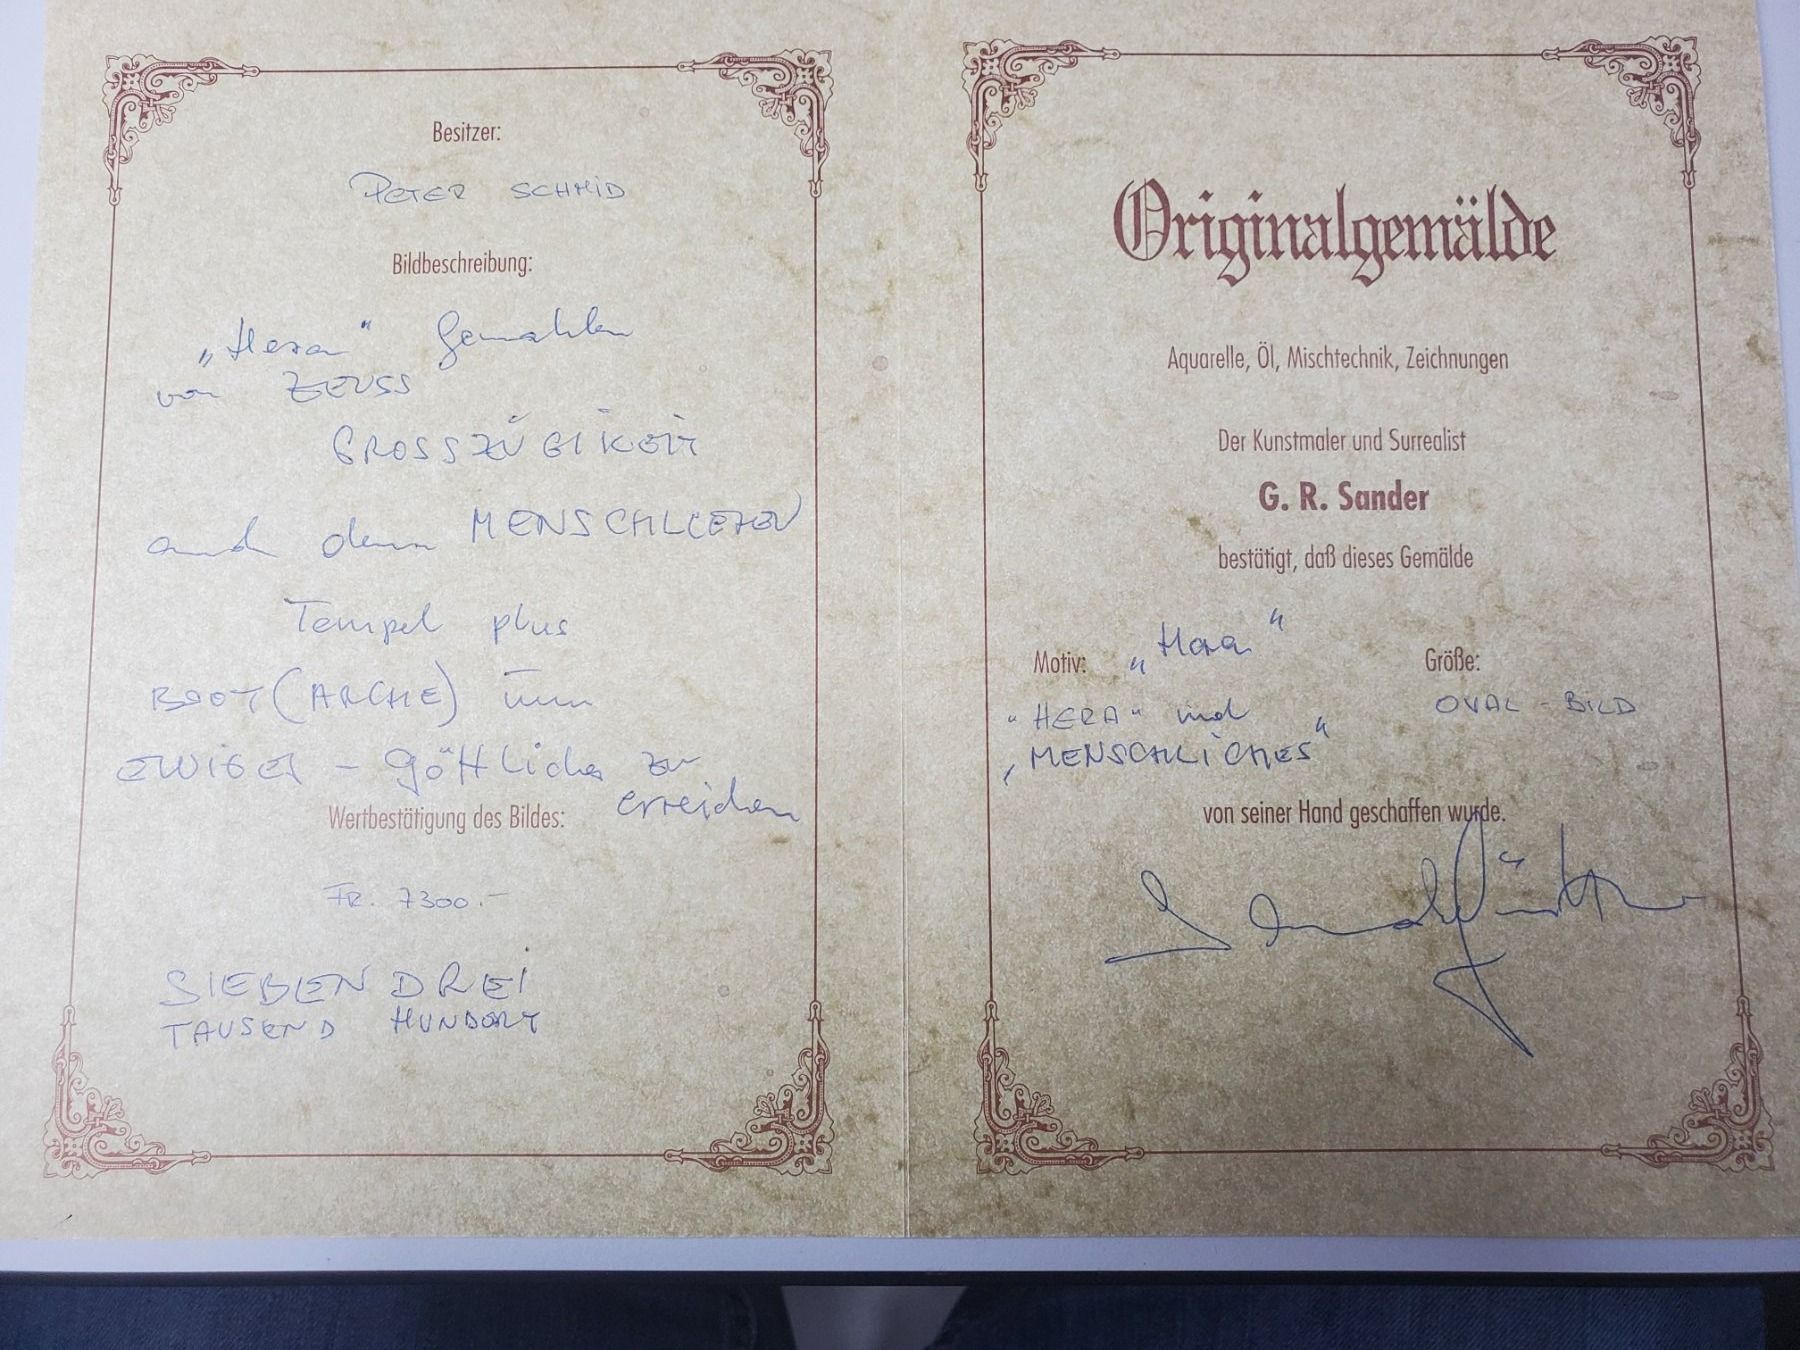 Besitzer:
PETER SCHMID
Bildbeschreibung:
„Hera“ Gemahlen
von ZEUSS
GROSSZÜGIKEIT
und dem MENSCHLICHEN
Tempel plus
BOOT (ARCHE) um
EWIGES - Göttliches zu
erreichen
Wertbestätigung des Bildes:
FR. 7300.-
SIEBEN DREI
TAUSEND HUNDERT
Originalgemälde
Aquarelle, Öl, Mischtechnik, Zeichnungen
Der Kunstmaler und Surrealist
G. R. Sander
bestätigt, daß dieses Gemälde
Motiv: „Hera“
Größe:
"HERA" und
OVAL - BILD
„MENSCHLICHES“
von seiner Hand geschaffen wurde.